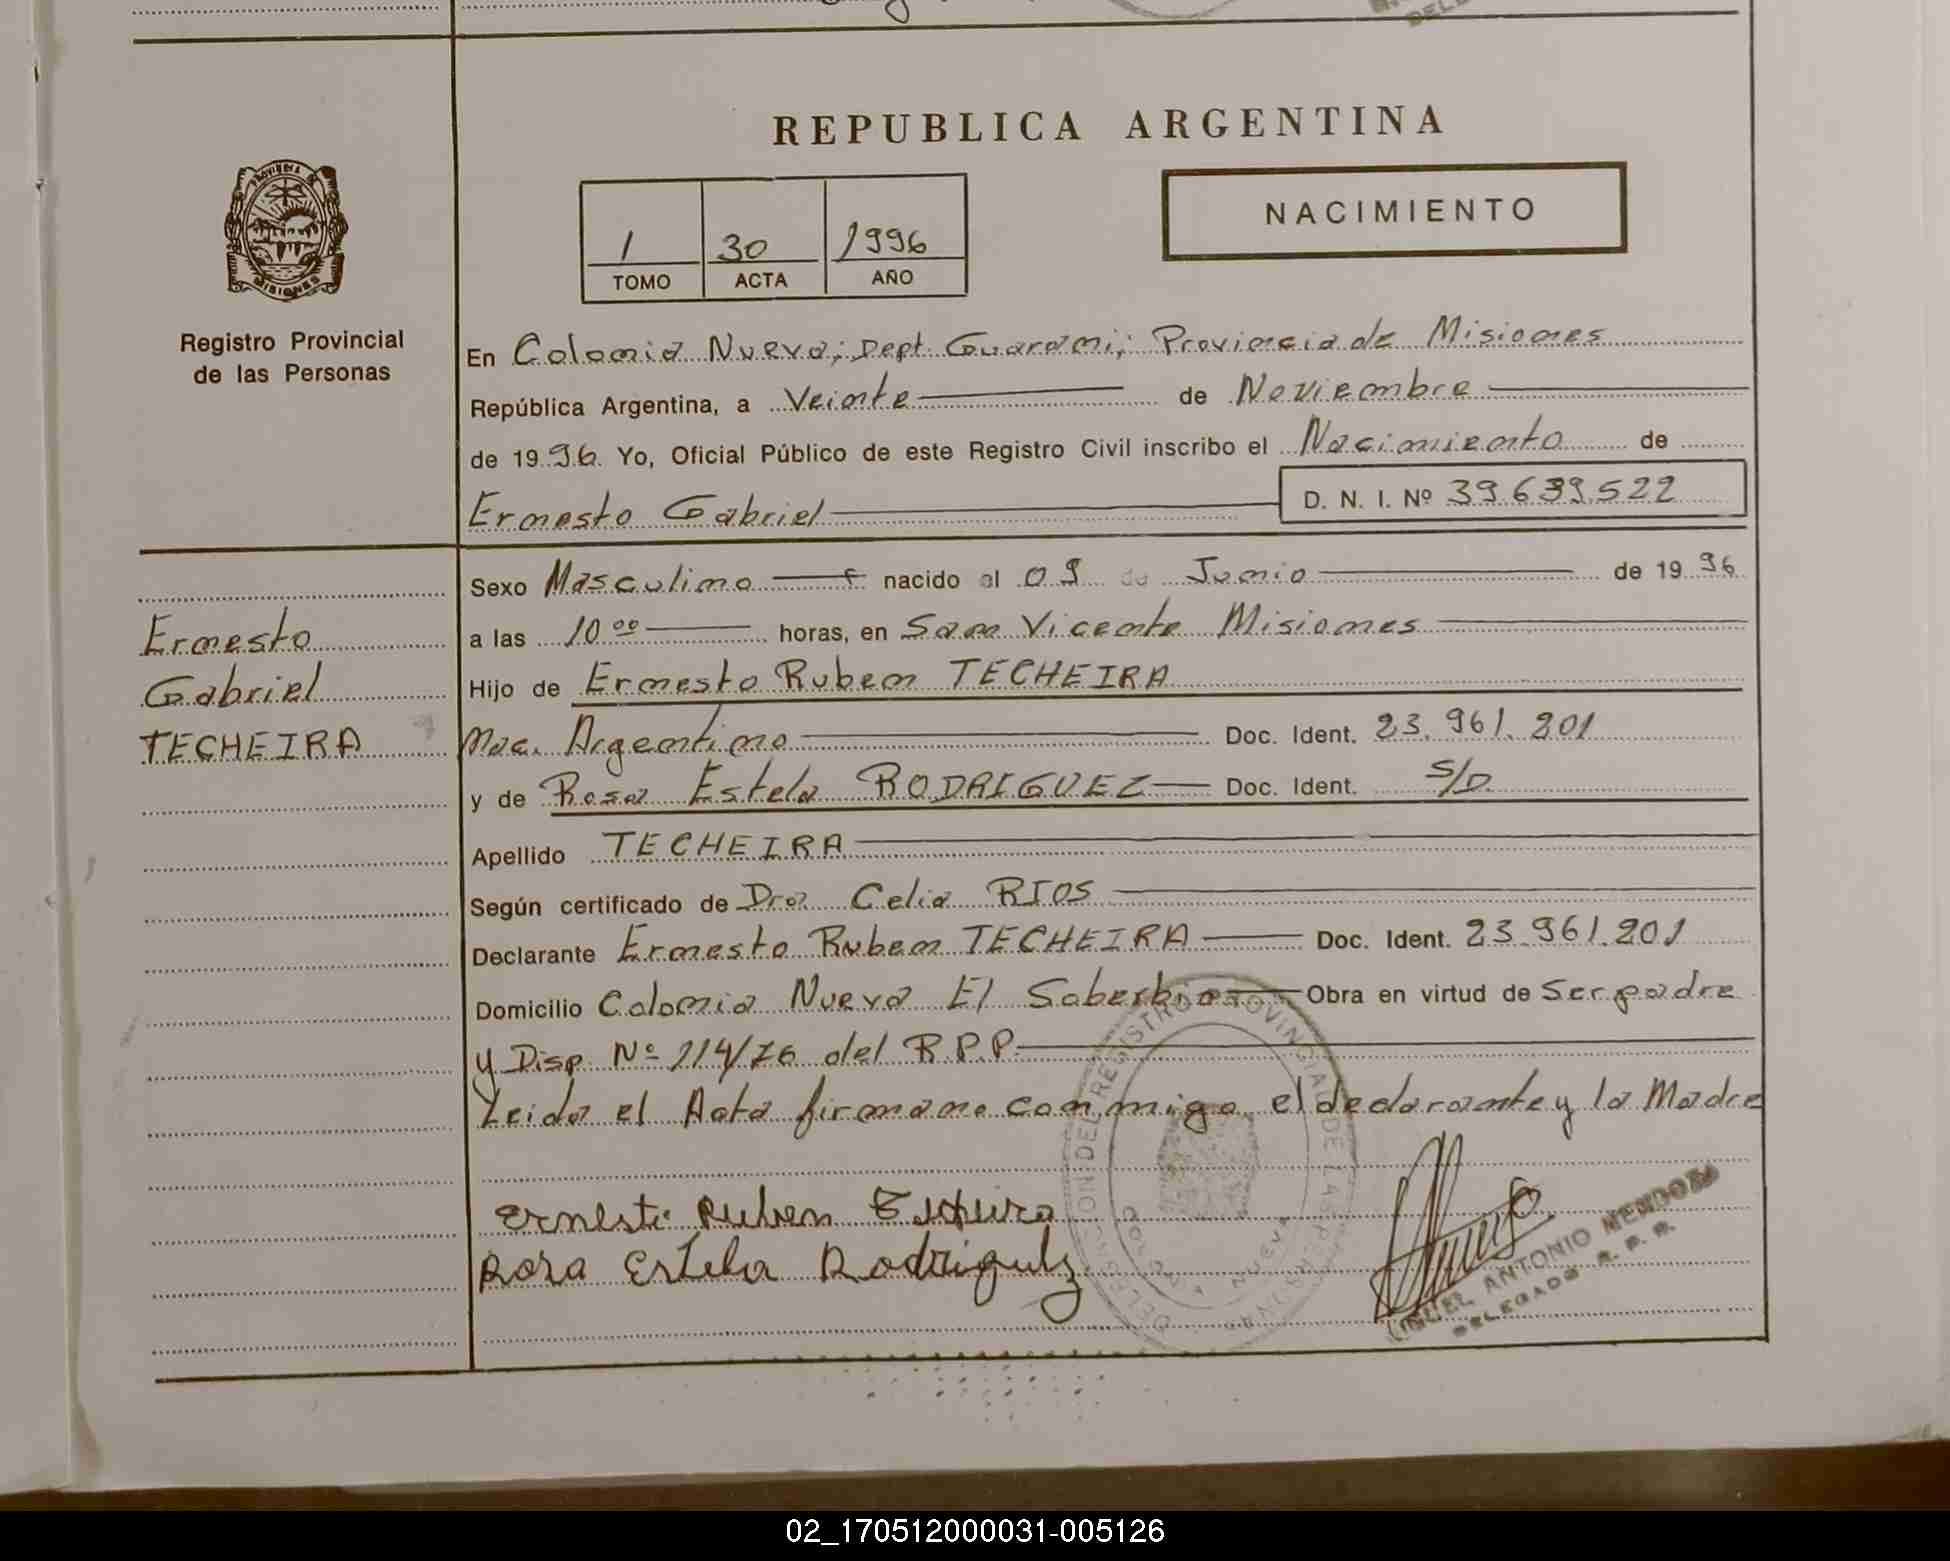 REPUBLICA ARGENTINA
PROVINCIA DE
MISIONES
Registro Provincial
de las Personas
1 30 1996
TOMO ACTA AÑO
NACIMIENTO
En Colonia Nueva; Dept. Guarani; Provincia de Misiones
República Argentina, a Veinte de Noviembre
de 1996. Yo, Oficial Público de este Registro Civil inscribo el Nacimiento de
Ernesto Gabriel D. N. I. Nº 39.639.522
Ernesto
Gabriel
TECHEIRA
Sexo Masculino nacido el 09 de Junio de 1996
a las 10 00 horas, en San Vicente Misiones
Hijo de Ernesto Ruben TECHEIRA
Nac. Argentino Doc. Ident. 23.961.201
y de Rosa Estela RODRIGUEZ Doc. Ident. S/D.
Apellido TECHEIRA
Según certificado de Dra Celia RIOS
Declarante Ernesto Ruben TECHEIRA Doc. Ident. 23.961.201
Domicilio Colonia Nueva El Soberbio Obra en virtud de Ser padre
y Disp. Nº 114/76 del R.P.P.
Leida el Acta firmane conmigo el declarante y la Madre
Ernesto Ruben Techeira
Rosa Estela Rodriguez
DELEGACION DEL REGISTRO PROVINCIAL DE LAS PERSONAS
COLONIA NUEVA
ANTONIO MENDOZA
DELEGADO R. P. P.
02_170512000031-005126